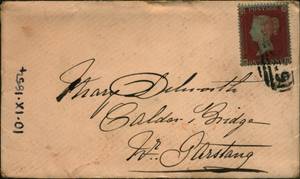 10·IX·1854
Mary Dilworth
Calder Bridge
Nr. Garstang